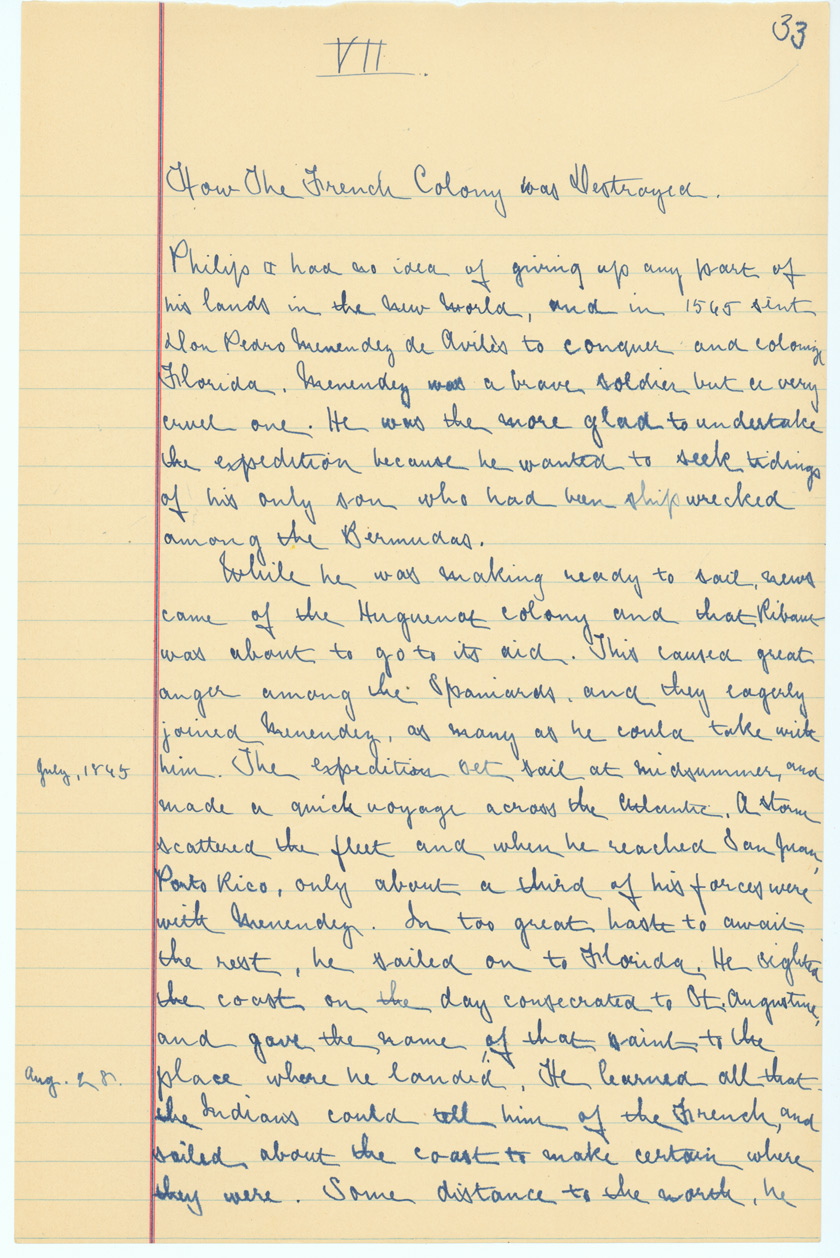 33
VII.
How The French Colony was Destroyed.
Philip II had no idea of giving up any part of
his lands in the New World, and in 1565 sent
Don Pedro Menendez de Avilès to conquer and colonize
Florida. Menendez was a brave soldier but a very
cruel one. He was the more glad to undertake
the expedition because he wanted to seek tidings
of his only son who had been shipwrecked
among the Bermudas.
While he was making ready to sail, news
came of the Huguenot colony and that Ribaut
was about to go to its aid. This caused great
anger among the Spaniards, and they eagerly
joined Menendez, as many as he could take with
July, 1565 him. The expedition set sail at midsummer, and
made a quick voyage across the Atlantic. A storm
scattered the fleet and when he reached San Juan,
Porto Rico, only about a third of his forces were
with Menendez. In too great haste to await
the rest, he sailed on to Florida. He sighted
the coast on the day consecrated to St. Augustine,
and gave the name of that saint to the
Aug. 28. place where he landed. He learned all that
the Indians could tell him of the French, and
sailed about the coast to make certain where
they were. Some distance to the north, he